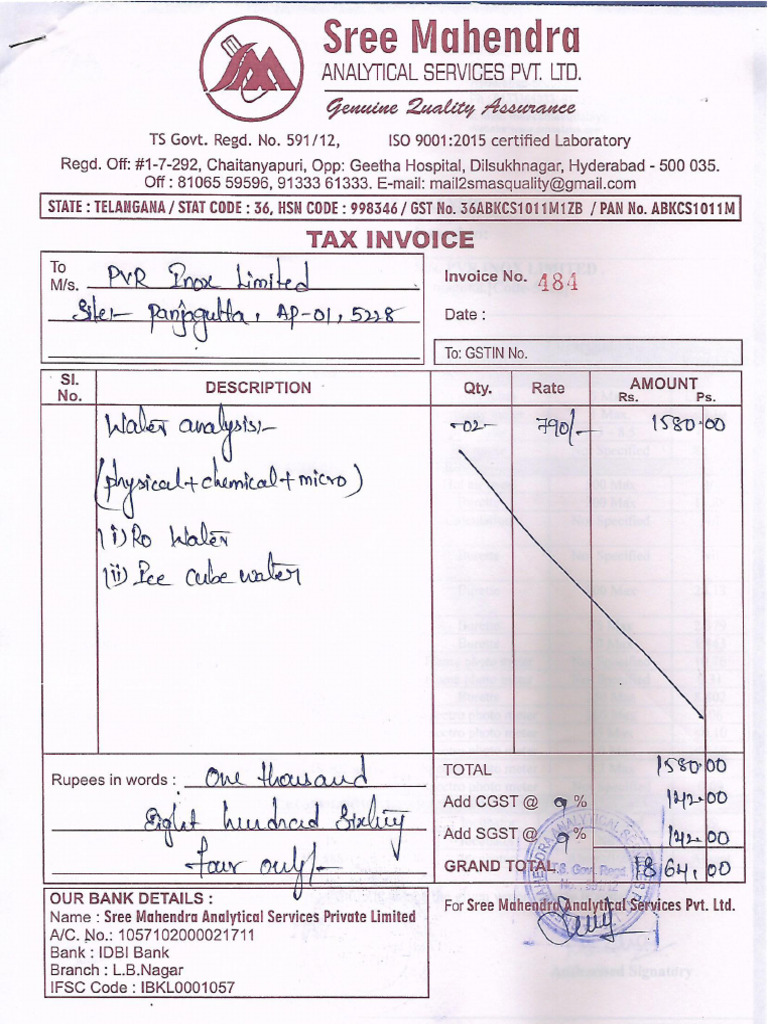 Sree Mahendra
ANALYTICAL SERVICES PVT. LTD.
Genuine Quality Assurance
TS Govt. Regd. No. 591/12, ISO 9001:2015 certified Laboratory
Regd. Off: #1-7-292, Chaitanyapuri, Opp: Geetha Hospital, Dilsukhnagar, Hyderabad - 500 035.
Off : 81065 59596, 91333 61333. E-mail: mail2smasquality@gmail.com
STATE : TELANGANA / STAT CODE : 36, HSN CODE : 998346 / GST No. 36ABKCS1011M1ZB / PAN No. ABKCS1011M
TAX INVOICE
To
M/s. PVR Inox Limited
Site:- Panjagutta, AP-01, 5228
Invoice No. 484
Date :
To: GSTIN No.
Sl. No. DESCRIPTION Qty. Rate AMOUNT Rs. Ps.
Water analysis:- -02- 790/- 1580.00
(physical+chemical+micro)
(i) Ro Water
(ii) Ice cube water
Rupees in words : One thousand
Eight hundred Sixty
four only/-
TOTAL 1580.00
Add CGST @ 9 % 142.00
Add SGST @ 9 % 142.00
GRAND TOTAL 1864.00
OUR BANK DETAILS :
Name : Sree Mahendra Analytical Services Private Limited
A/C. No.: 1057102000021711
Bank : IDBI Bank
Branch : L.B.Nagar
IFSC Code : IBKL0001057
For Sree Mahendra Analytical Services Pvt. Ltd.
T.S. Gov. Regd.
Authorised Signatory